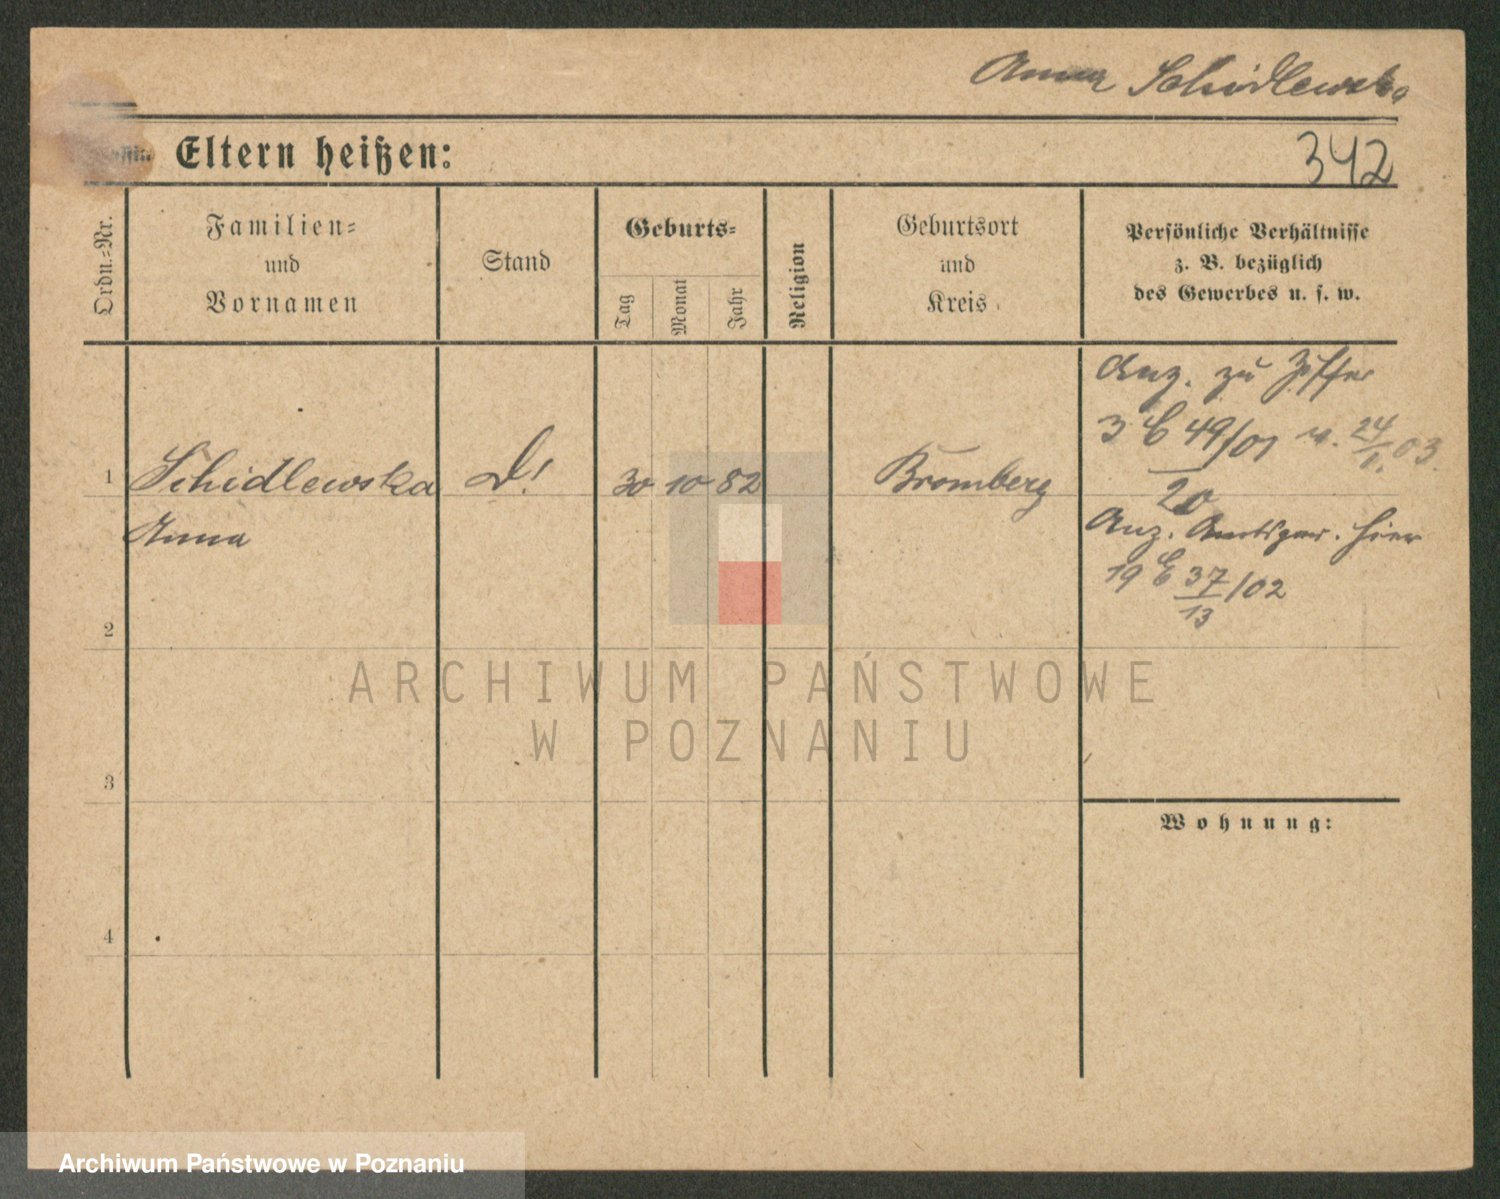 Anna Schidlewska
Eltern heißen:
342
Ordn.-Nr.
Familien-
und
Vornamen
Stand
Geburts-
Tag
Monat
Jahr
Religion
Geburtsort
und
Kreis
Persönliche Verhältnisse
z. B. bezüglich
des Gewerbes u. s. w.
1
Schidlewska
Anna
D!
30 10 82
Bromberg
Anz. zu Ziffer
3 C 49/01 v. 24/11. 03.
20
Anz. hier
19 E 37/13/02
2
3
4
Wohnung:
ARCHIWUM PAŃSTWOWE
W POZNANIU
Archiwum Państwowe w Poznaniu